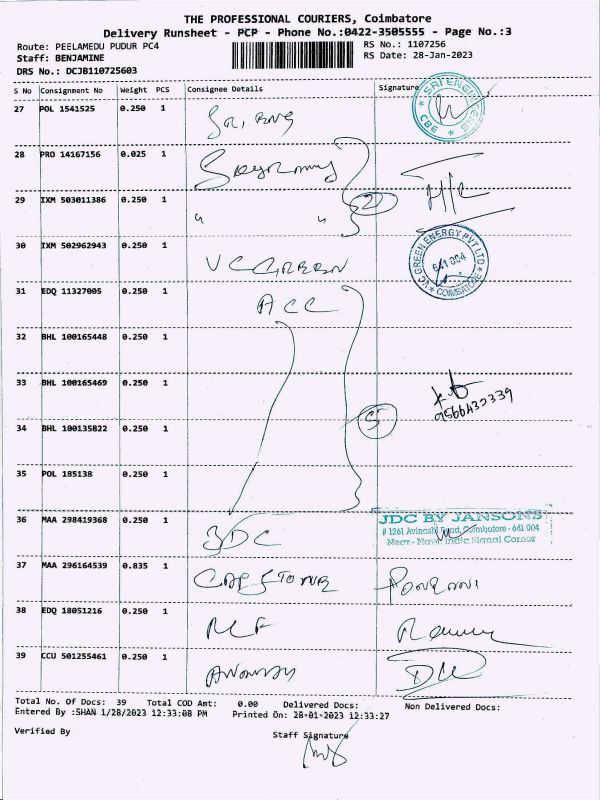 THE PROFESSIONAL COURIERS, Coimbatore
Delivery Runsheet - PCP - Phone No.:0422-3505555 - Page No.:3
Route: PEELAMEDU PUDUR PC4 RS No.: 1107256
Staff: BENJAMINE RS Date: 28-Jan-2023
DRS No.: DCJB110725603
S No Consignment No Weight PCS Consignee Details Signature
27 POL 1541525 0.250 1
SRI ENGINEERS CBE
28 PRO 14167156 0.025 1
29 IXM 503011386 0.250 1 " " 2
30 IXM 502962943 0.250 1 VC GREEN
VC GREEN ENERGY PVT LTD
641 004
COIMBATORE
31 EDQ 11327005 0.250 1 ACC
32 BHL 100165448 0.250 1
33 BHL 100165469 0.250 1
9566432339
34 BHL 100135822 0.250 1 5
35 POL 185138 0.250 1
36 MAA 298419368 0.250 1 JDC
JDC BY JANSONS
# 1261 Avinashi Road, Coimbatore - 641 004
Near - Nava India Signal Corner
37 MAA 296164539 0.835 1 CAPSTONE
38 EDQ 18051216 0.250 1
39 CCU 501255461 0.250 1
Total No. Of Docs: 39 Total COD Amt: 0.00 Delivered Docs: Non Delivered Docs:
Entered By :SHAN 1/28/2023 12:33:08 PM Printed On: 28-01-2023 12:33:27
Verified By Staff Signature